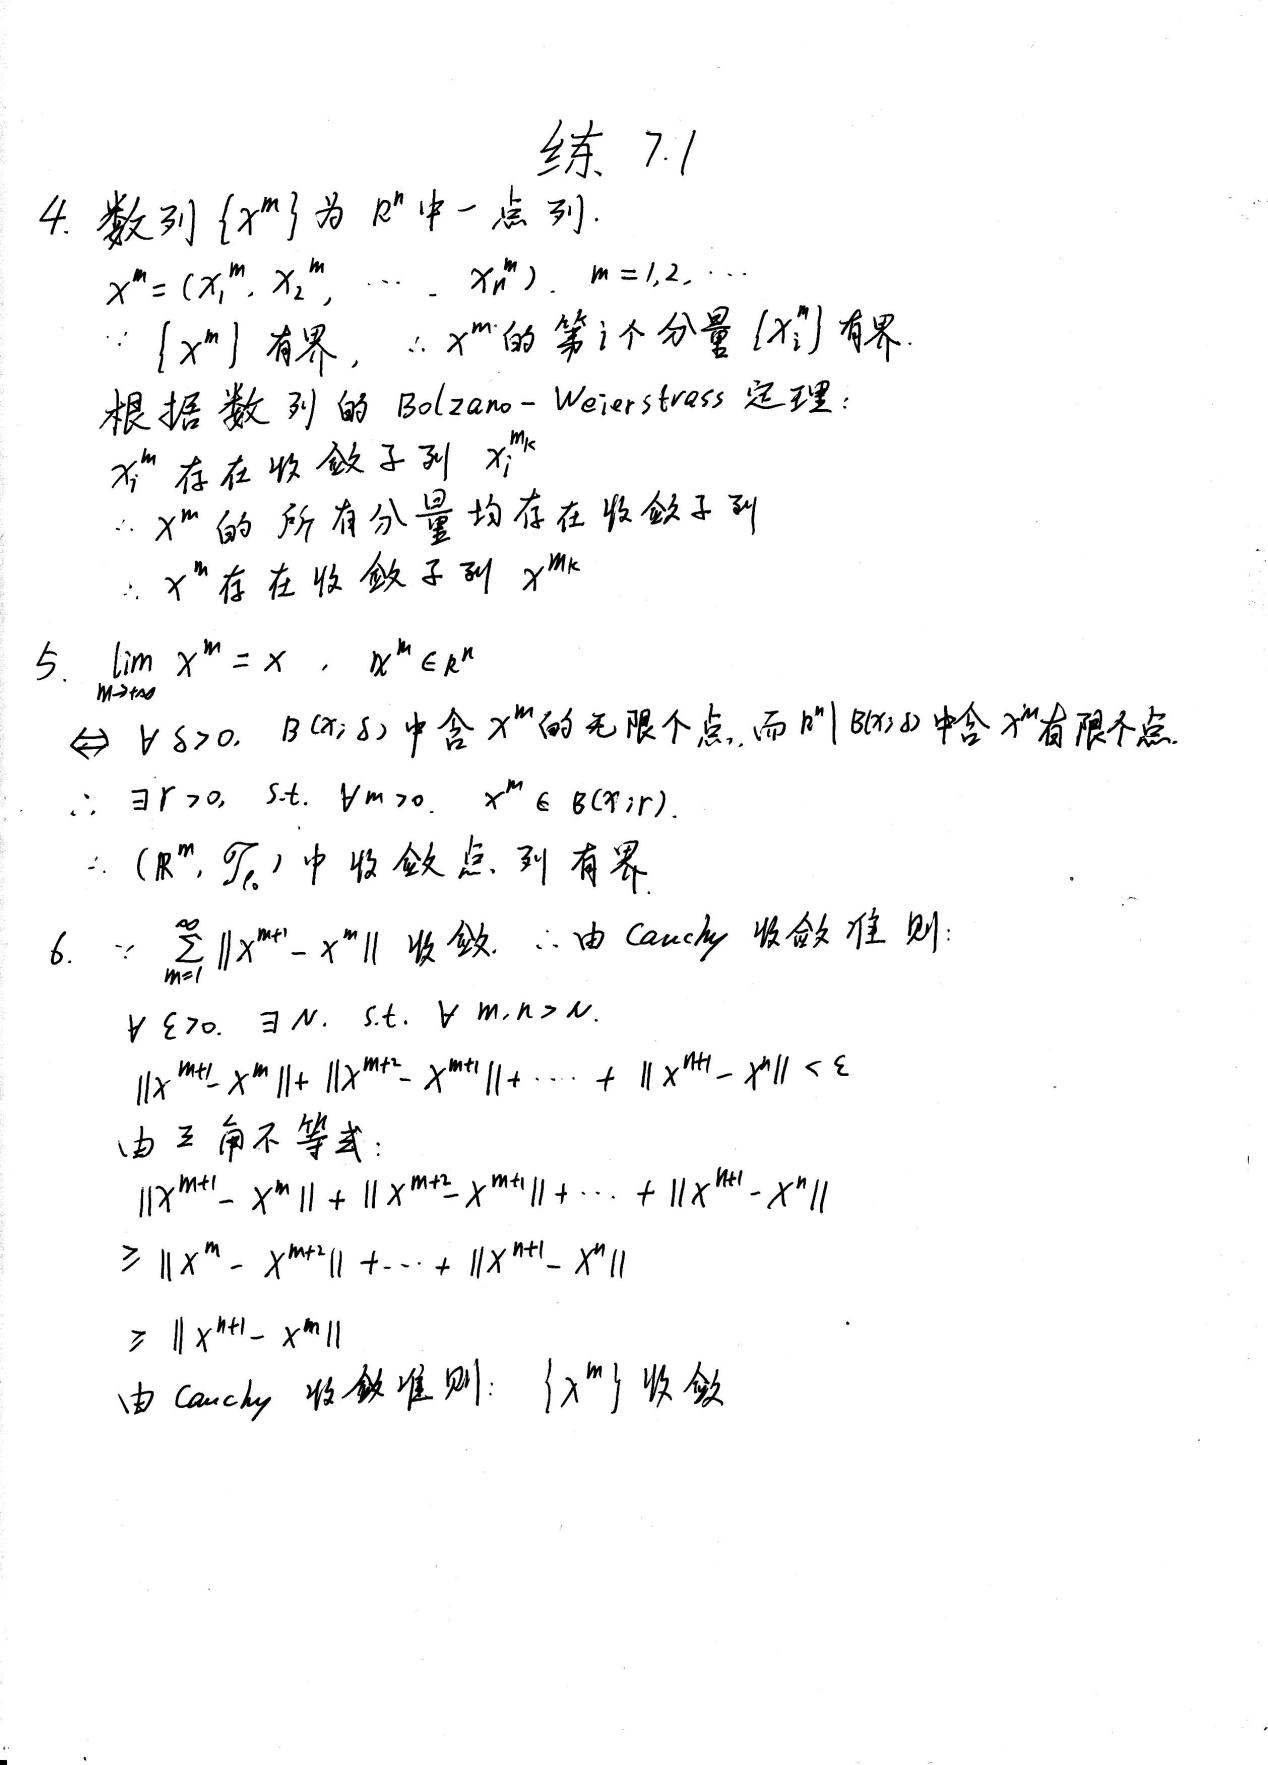 练 7.1
4. 数列 {x^m} 为 R^n 中一点列.
x^m = (x_1^m, x_2^m, … x_n^m). m=1,2,…
∵ {x^m} 有界, ∴ x^m 的第 i 个分量 {x_i^m} 有界.
根据数列的 Bolzano-Weierstrass 定理:
x_i^m 存在收敛子列 x_i^{m_k}
∴ x^m 的所有分量均存在收敛子列
∴ x^m 存在收敛子列 x^{m_k}
5. lim_{m→+∞} x^m = x , x^m ∈ R^n
⇔ ∀ δ>0. B(x;δ) 中含 x^m 的无限个点, 而 R^n\B(x;δ) 中含 x^m 有限个点.
∴ ∃ r>0, s.t. ∀m>0. x^m ∈ B(x;r).
∴ (R^m, 𝒯_{ρ_0}) 中收敛点列有界.
6. ∵ ∑_{m=1}^∞ ||x^{m+1} - x^m|| 收敛. ∴ 由 Cauchy 收敛准则:
∀ ε>0. ∃ N. s.t. ∀ m,n>N.
||x^{m+1} - x^m|| + ||x^{m+2} - x^{m+1}|| + ⋯ + ||x^{n+1} - x^n|| < ε
由三角不等式:
||x^{m+1} - x^m|| + ||x^{m+2} - x^{m+1}|| + ⋯ + ||x^{n+1} - x^n||
≥ ||x^m - x^{m+2}|| + ⋯ + ||x^{n+1} - x^n||
≥ ||x^{n+1} - x^m||
由 Cauchy 收敛准则: {x^m} 收敛